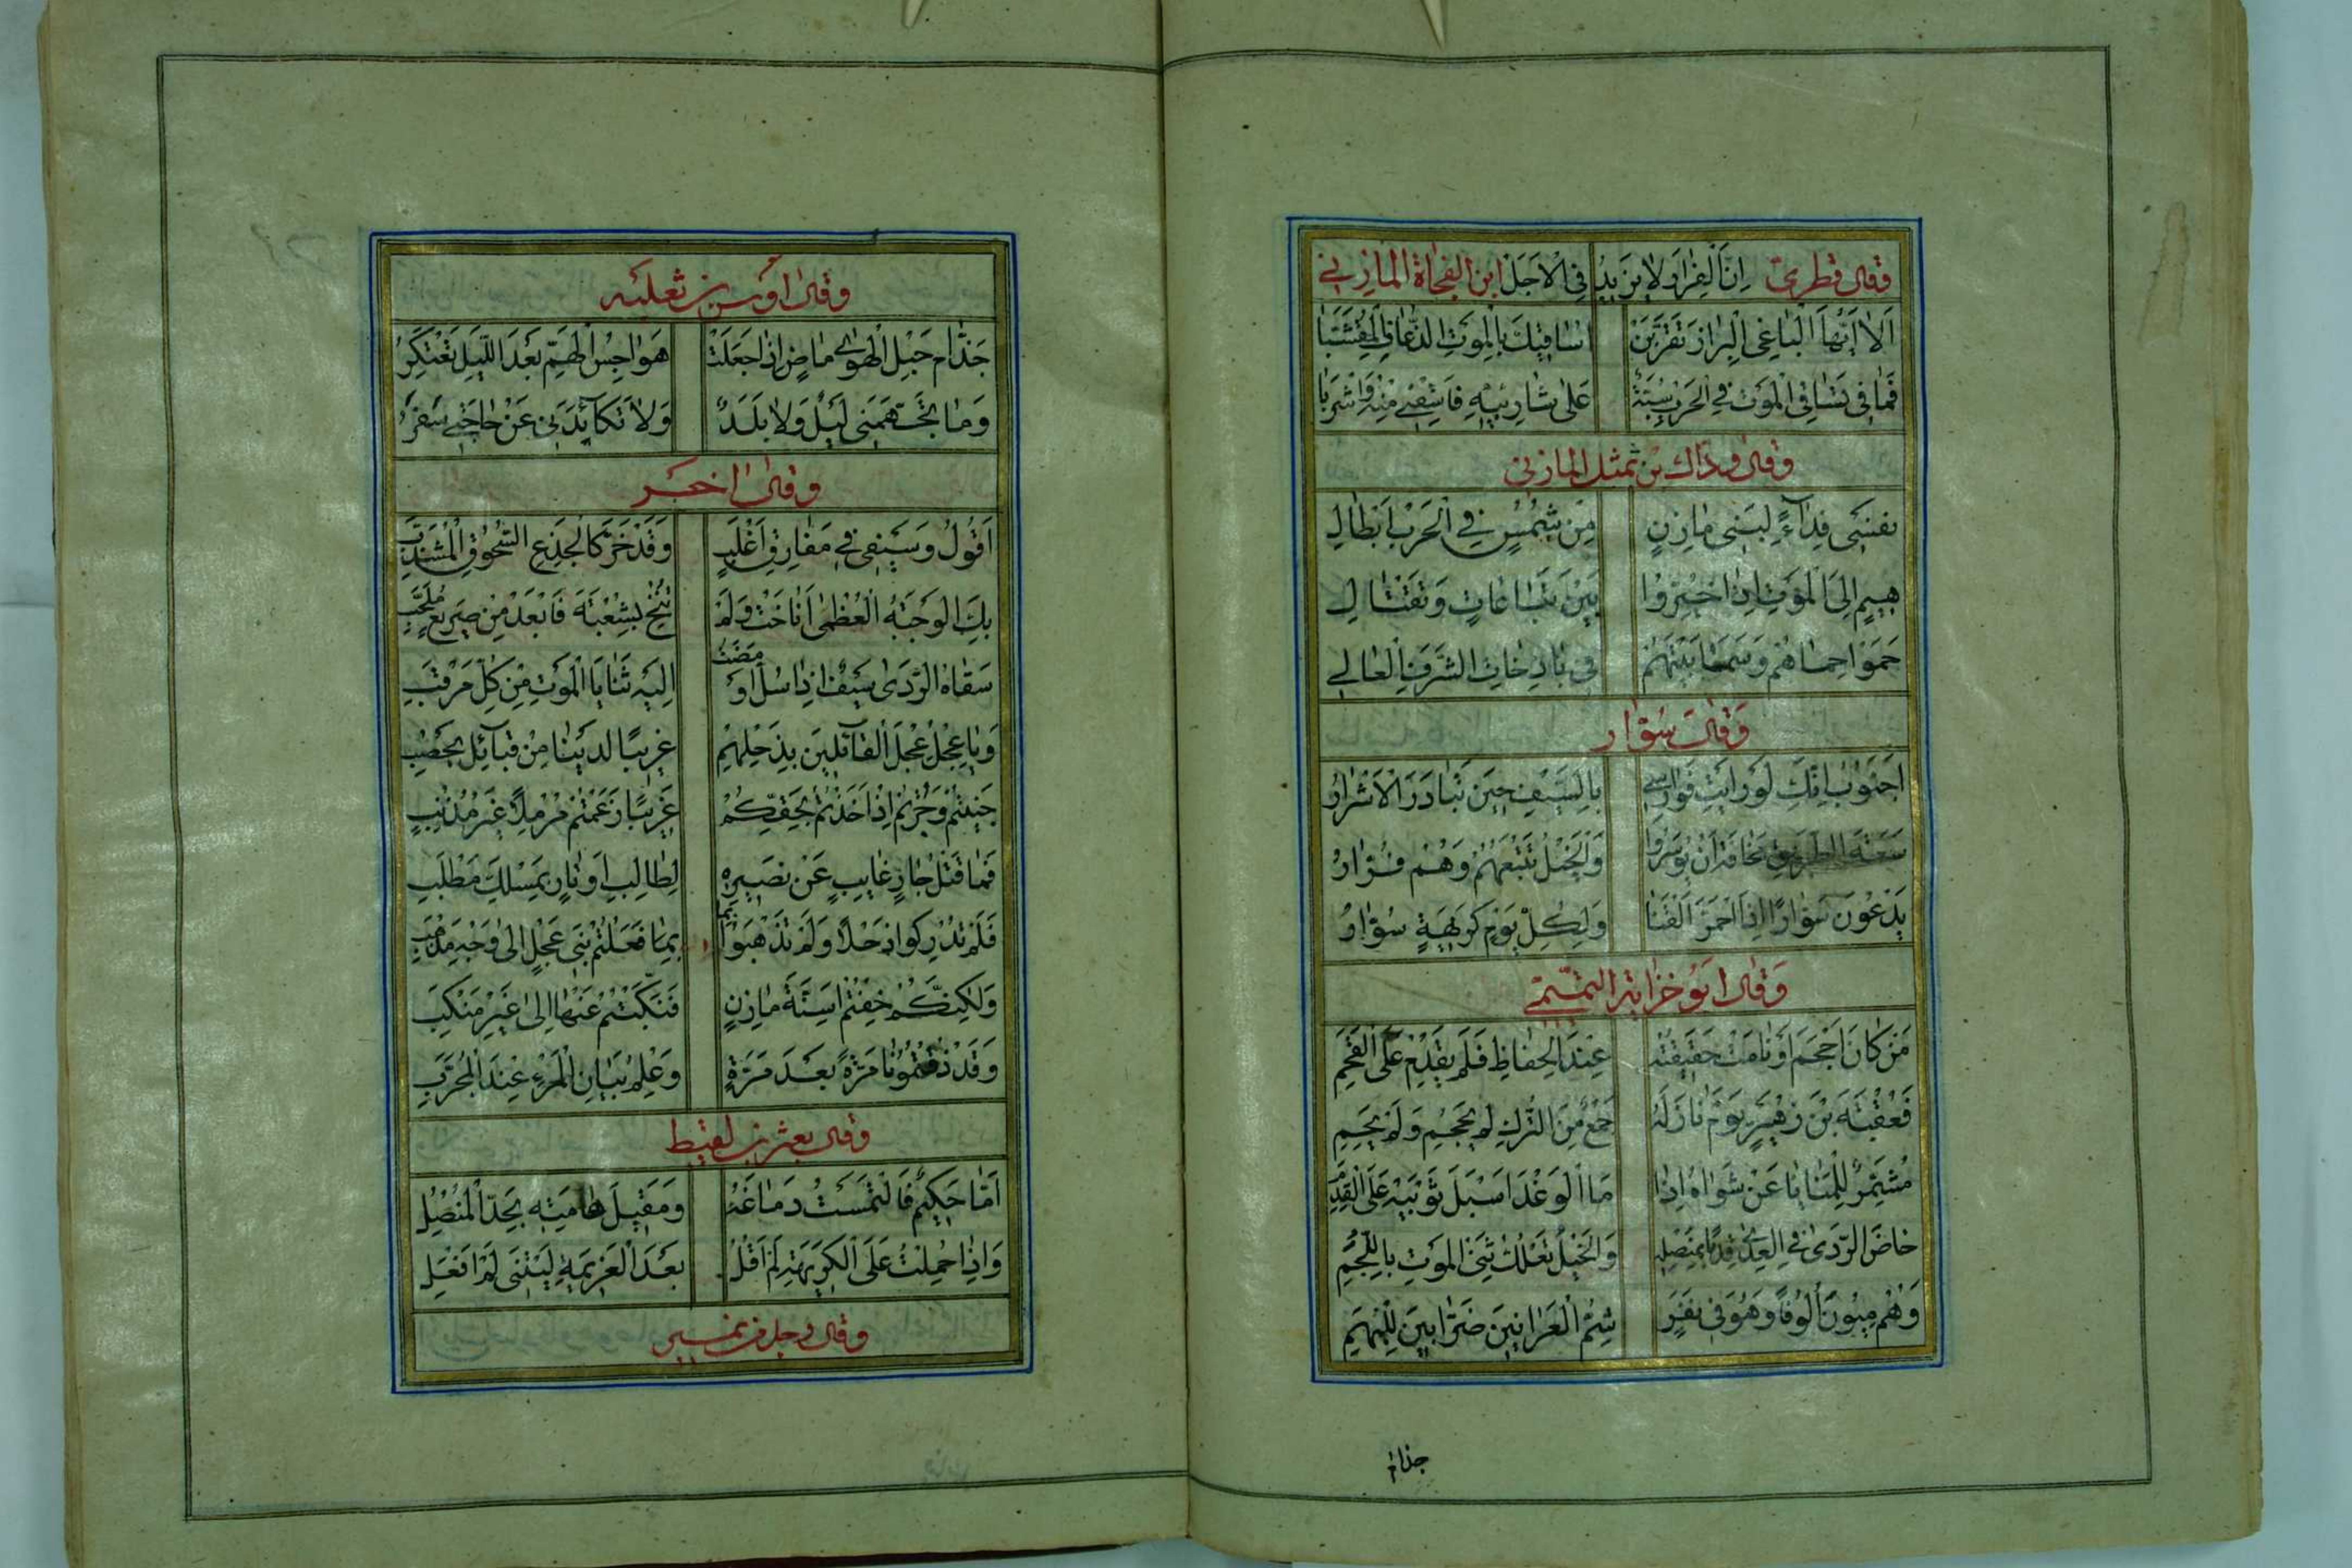 وقال قطري اِنَّ الْفِرَارَ لا يَزِيدُ فِي الاَجَلْ ابن الفجاة المازني
اَلا اَيُّهَا الْبَاغِي الْبِرَازَ تَقَرَّبَنْ اُسَاقِيكَ بِالْمَوتِ الذُّعَافَ الْمُقَشَّبَا
فَمَا فِي تَسَاقِي الْمَوْتِ فِي الْحَرْبِ سُبَّةٌ عَلَى شَارِبَيْهِ فَاسْقِنِي مِنْهُ وَاشْرَبَا
وقال وداك بن ثمثل المازني
نَفْسِي فِدَآءٌ لِبَنِي مَازِنٍ مِنْ شُمُسٍ فِي الْحَرْبِ اَبْطَالِ
هِيمٍ اِلَى الْمَوْتِ اِذَا خُيِّرُوا بَيْنَ تِبَاعَاتٍ وَتَقْتَالِ
حَمَوْا حِمَاهُمْ وَسَمَا بَيْتُهُمْ فِي بَاذِخَاتِ الشَّرَفِ الْعَالِي
وَقَالَ سَوّار
اَجَنُوبُ اِنَّكِ لَوْ رَاَيْتِ فَوَارِسِي بِالسَّيْفِ حِينَ تَبَادَرَ الْاَشْرَارُ
سَعَةَ الطَّرِيقِ مَخَافَةَ اَنْ يُوسَرُوا وَالْخَيْلُ تَتْبَعُهُمْ وَهُمْ فُرَّارُ
يَدْعُونَ سَوَّارًا اِذَا احْمَرَّ الْقَنَا وَلِكُلِّ يَوْمِ كَرِيهَةٍ سَوَّارُ
وَقَال ابو خزابة التميمي
مَنْ كَانَ اَحْجَمَ اَوْ نَامَتْ حَقِيقَتُهُ عِنْدَ الْحِفَاظِ فَلَمْ يُقْدِمْ عَلَى الْقُحَمِ
فَعُقْبَةَ بْنَ زُهَيْرٍ يَوْمَ نَازَلَهُ جَمْعٌ مِنَ التُّرْكِ لَمْ يُحْجِمْ وَلَمْ يَخِمِ
مُشَمِّرٌ لِلْمَنَايَا عَنْ شَوَاهُ اِذَا مَا الْوَغْدُ اَسْبَلَ ثَوْبَيْهِ عَلَى الْقَدَمِ
خَاضَ الرَّدَى فِي الْعِدَى قِدْمًا بِمُنْصُلِهِ وَالْخَيْلُ تَعْلُكُ ثِنْيَ الْمَوْتِ بِاللُّجُمِ
وَهُمْ مِئُونَ اُلُوفًا وَهُوَ فِي نَفَرٍ شُمِّ الْعَرَانِينَ ضَرَّابِينَ لِلْبُهَمِ
جذام
وقال اوس بن ثعلبه
جَذَّامُ حَبْلِ الْهَوَى مَاضٍ اِذَا جَعَلَتْ هَوَاجِسُ الْهَمِّ بَعْدَ اللَّيْلِ تَعْتَكِرُ
وَمَا تَجَهَّمَنِي لَيْلٌ وَلا بَلَدٌ وَلا تَكَآئَدَنِي عَنْ حَاجَتِي سَفَرُ
وقال اخر
اَقُولُ وَسَيْفِي فِي مَفَارِقِ اَغْلَبٍ وَقَدْ خَرَّ كَالْجِذْعِ السَّحُوقِ الْمُشَذَّبِ
بِكَ الْوَجْبَةُ الْعُظْمَى اَنَاخَتْ وَلَمْ تُنِخْ بِشُعْبَةَ فَابْعَدْ مِنْ صَرِيعٍ مُلَحَّبِ
سَقَاهُ الرَّدَى سَيْفٌ اِذَا سُلَّ اَوْمَضَتْ اِلَيْهِ ثَنَايَا الْمَوْتِ مِنْ كُلِّ مَرْقَبِ
وَيَا عِجْلُ عِجْلَ الْقَآئِلِينَ بِذَحْلِهِمْ غَرِيبًا لَدَيْنَا مِنْ قَبَآئِلِ يَحْصُبِ
جَنَيْتُمْ وَجُرْتُمْ اِذْ اَخَذْتُمْ بِحَقِّكُمْ غَرِيبًا زَعَمْتُمْ مُرْمِلاً غَيْرَ مُذْنِبِ
فَمَا قَتْلُ جَارٍ غَايِبٍ عَنْ نَصِيرِهِ لِطَالِبِ اَوْتَارٍ بِمَسْلَكِ مَطْلَبِ
فَلَمْ تُدْرِكُوا ذَحْلاً وَلَمْ تَذْهَبُوا بِمَا فَعَلْتُمْ بَنِي عِجْلٍ اِلَى وَجْهِ مَذْهَبِ
وَلَكِنَّكُمْ خِفْتُمْ اَسِنَّةَ مَازِنٍ فَنَكَّبْتُمْ عَنْهَا اِلَى غَيْرِ مَنْكَبِ
وَقَدْ ذُقْتُمُونَا مَرَّةً بَعْدَ مَرَّةٍ وَعِلْمُ بَيَانِ الْمَرْءِ عِنْدَ الْمُجَرِّبِ
وقال بعثر بن لقيط
اَمَّا حَكِيمٌ فَالْتَمَسْتُ دِمَاغَهُ وَمَقِيلَ هَامَتِهِ بِحَدِّ الْمُنْصُلِ
وَاِذَا حُمِلْتُ عَلَى الْكَرِيهَةِ لَمْ اَقُلْ بَعْدَ الْعَزِيمَةِ لَيْتَنِي لَمْ اَفْعَلِ
وقال رجل من نمير